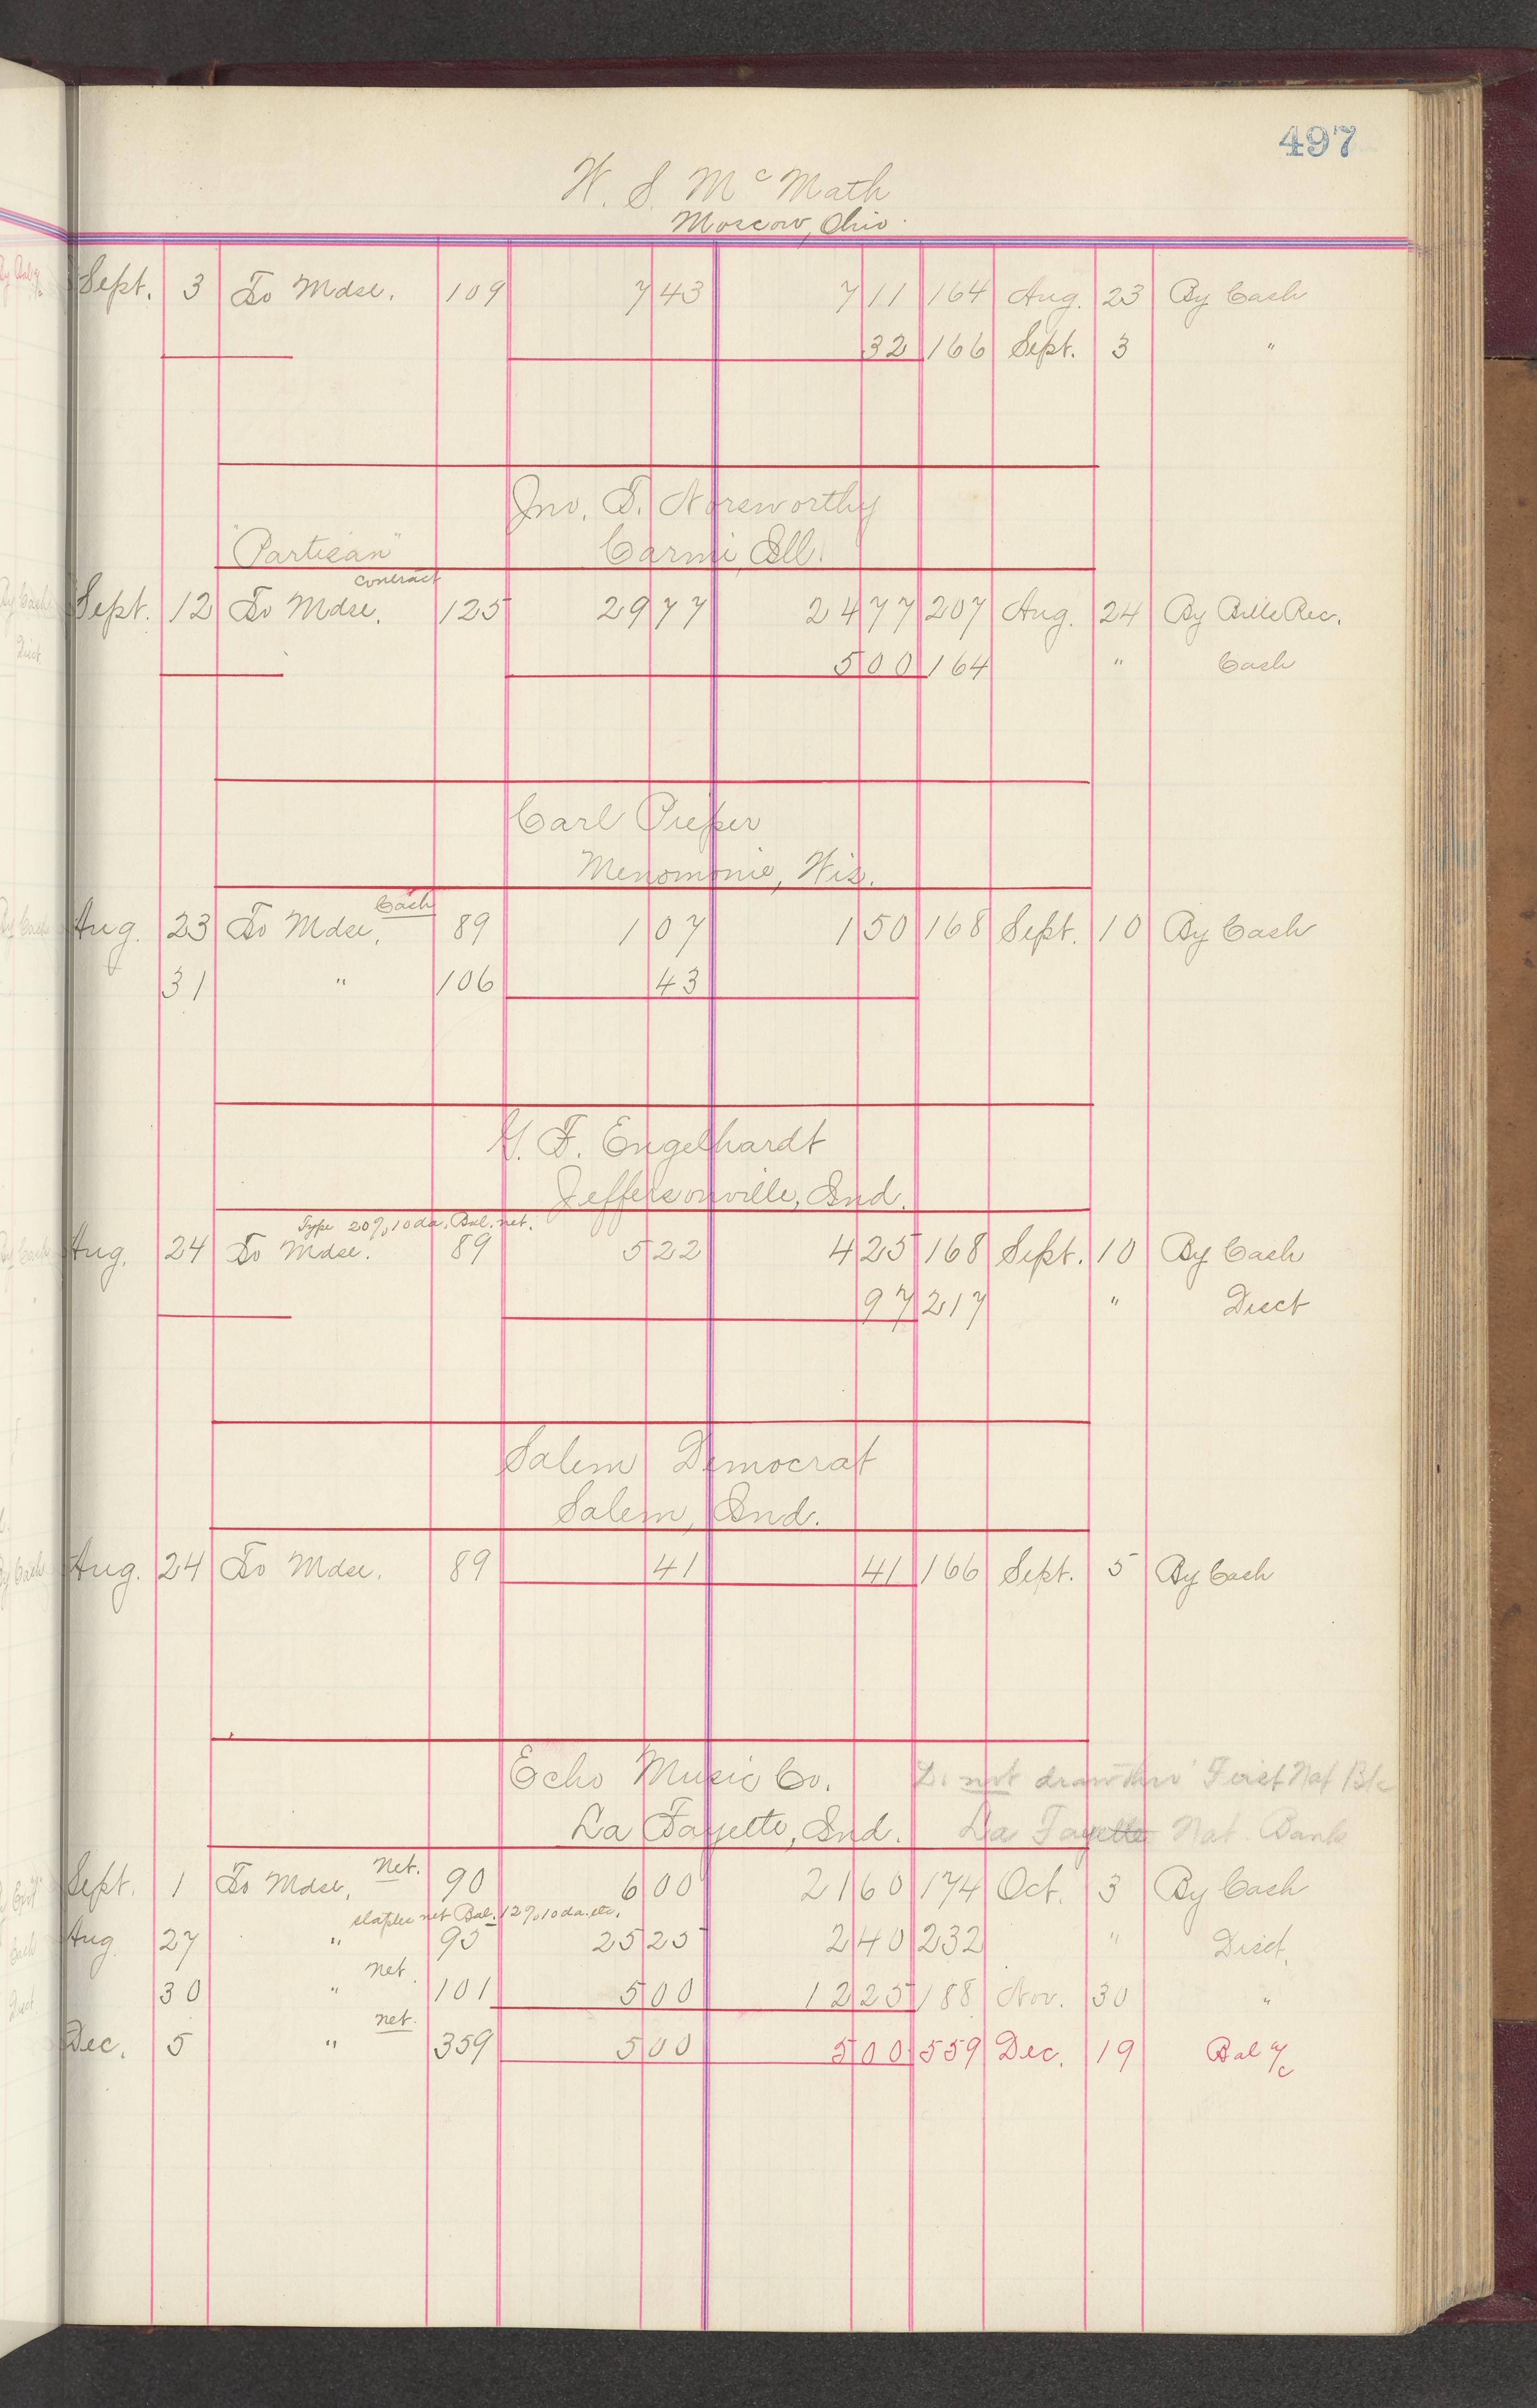 497
W. S. McMath
Moscow, Ohio
Sept. 3 To Mdse. 109 7 43 7 11 164 Aug. 23 By Cash
32 166 Sept. 3 "
Jno. T. Norsworthy
"Partisan" Carmi, Ill.
contract
Sept. 12 To Mdse. 125 29 77 24 77 207 Aug. 24 By Bills Rec.
5 00 164 " Cash
Carl Pieper
Menomonie, Wis.
Cash
Aug. 23 To Mdse. 89 1 07 1 50 168 Sept. 10 By Cash
31 " 106 43
G. F. Engelhardt
Jeffersonville, Ind.
Type 20%, 10 da. Bal. net.
Aug. 24 To Mdse. 89 5 22 4 25 168 Sept. 10 By Cash
97 217 " Disct
Salem Democrat
Salem, Ind.
Aug. 24 To Mdse. 89 41 41 166 Sept. 5 By Cash
Echo Music Co. Do not draw thro' First Nat Bk
La Fayette, Ind. La Fayette Nat. Bank
net.
Sept. 1 To Mdse. 90 6 00 21 60 174 Oct. 3 By Cash
staples net Bal. 12%, 10 da. etc.
Aug 27 " 95 25 25 2 40 232 " Disct.
net.
30 " 101 5 00 12 25 188 Nov. 30 "
net.
Dec. 5 " 359 5 00 5 00 559 Dec. 19 Bal a/c